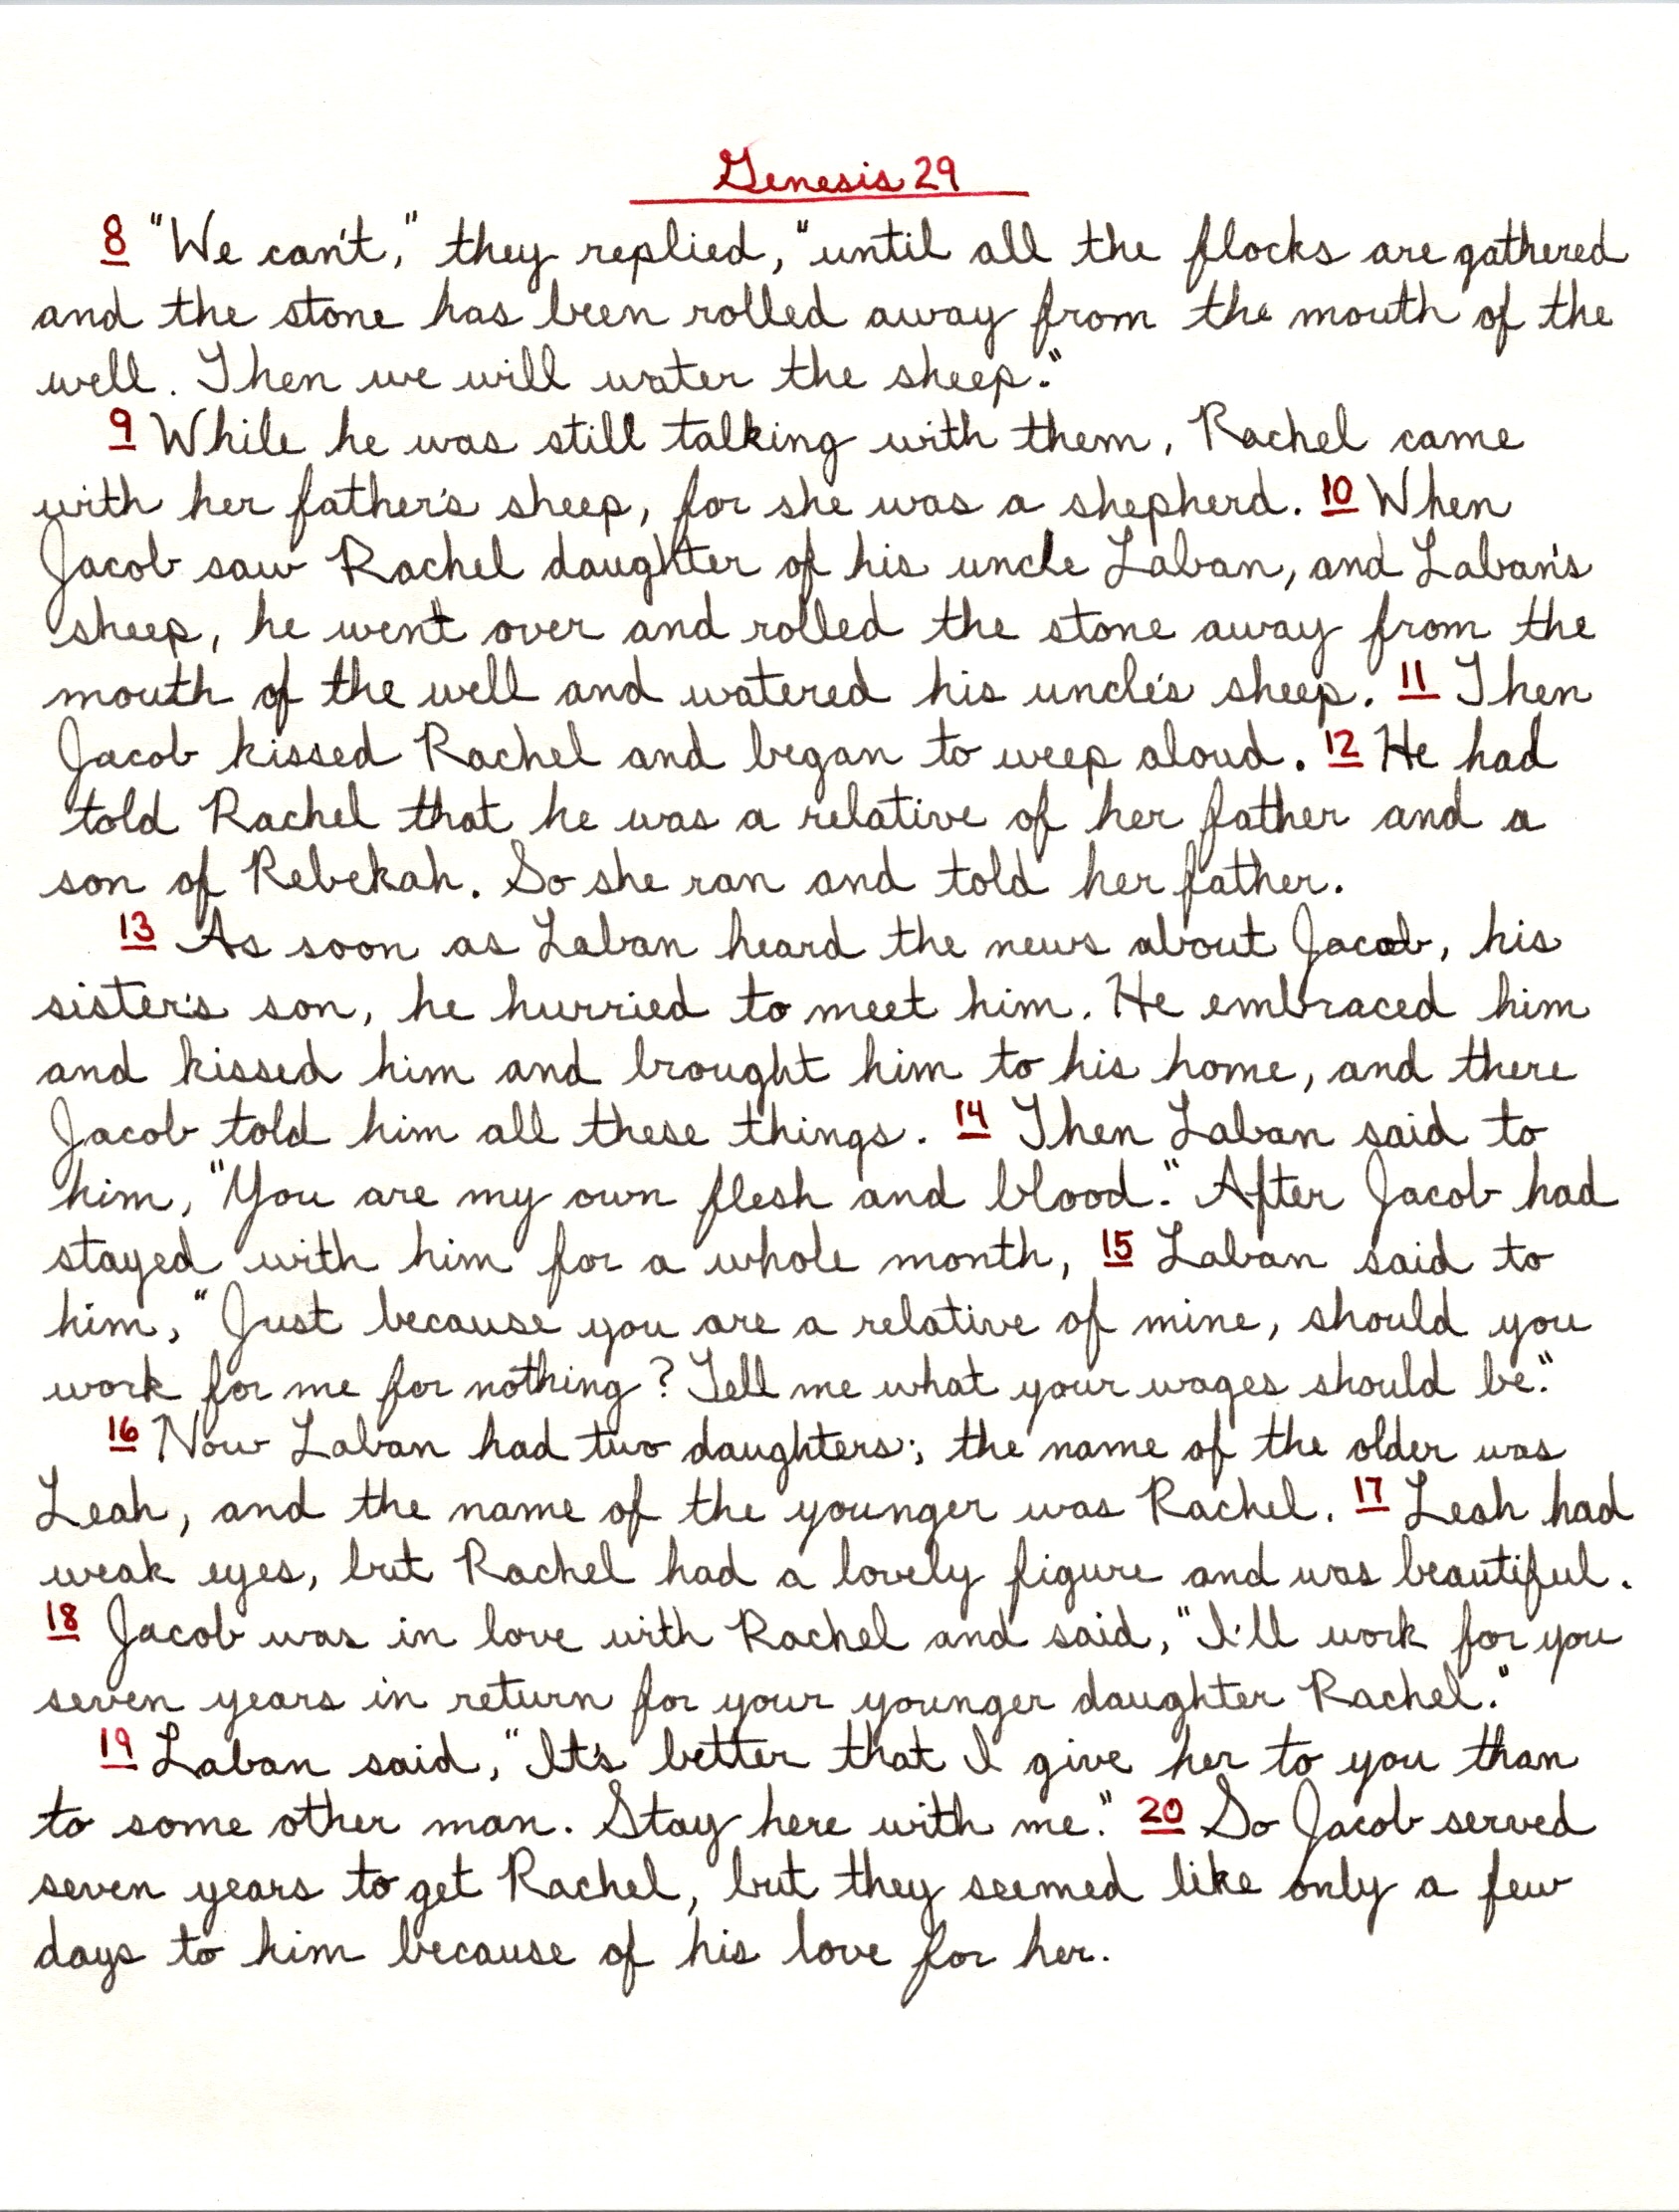 Genesis 29
8 "We can't," they replied, "until all the flocks are gathered
and the stone has been rolled away from the mouth of the
well. Then we will water the sheep."
9 While he was still talking with them, Rachel came
with her father's sheep, for she was a shepherd. 10 When
Jacob saw Rachel daughter of his uncle Laban, and Laban's
sheep, he went over and rolled the stone away from the
mouth of the well and watered his uncle's sheep. 11 Then
Jacob kissed Rachel and began to weep aloud. 12 He had
told Rachel that he was a relative of her father and a
son of Rebekah. So she ran and told her father.
13 As soon as Laban heard the news about Jacob, his
sister's son, he hurried to meet him. He embraced him
and kissed him and brought him to his home, and there
Jacob told him all these things. 14 Then Laban said to
him, "You are my own flesh and blood." After Jacob had
stayed with him for a whole month, 15 Laban said to
him, "Just because you are a relative of mine, should you
work for me for nothing? Tell me what your wages should be."
16 Now Laban had two daughters; the name of the older was
Leah, and the name of the younger was Rachel. 17 Leah had
weak eyes, but Rachel had a lovely figure and was beautiful.
18 Jacob was in love with Rachel and said, "I'll work for you
seven years in return for your younger daughter Rachel."
19 Laban said, "It's better that I give her to you than
to some other man. Stay here with me." 20 So Jacob served
seven years to get Rachel, but they seemed like only a few
days to him because of his love for her.